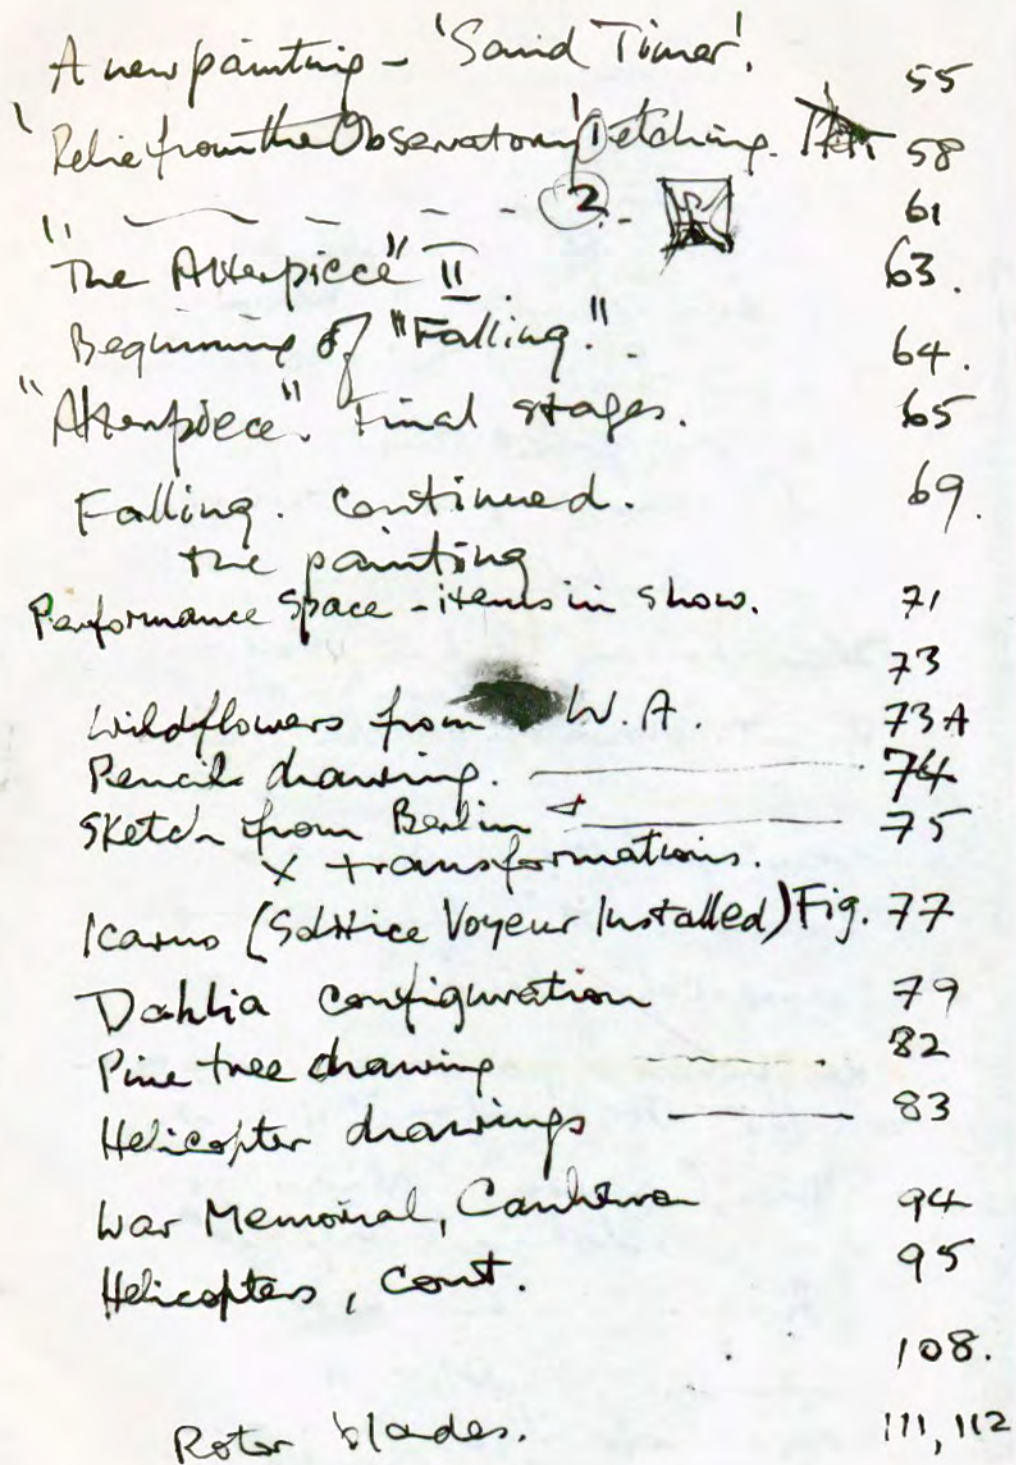 A new painting - 'Sand Timer'. 55
'Relic from the Observatory' ① etching. 58
" - - - ② - - 61
"The Alterpiece" II. 63.
Beginning of "Falling." 64.
"Alterpiece". Final stages. 65
Falling. Continued. 69.
the painting
Performance Space - items in show. 71
73
Wildflowers from W.A. 73A
Pencil drawing. 74
Sketch from Berlin 75
x transformations.
Icarus (Solstice Voyeur Installed) Fig. 77
Dahlia configuration 79
Pine tree drawing 82
Helicopter drawings 83
War Memorial, Canberra 94
Helicopters, Cont. 95
108.
Rotor blades. 111, 112